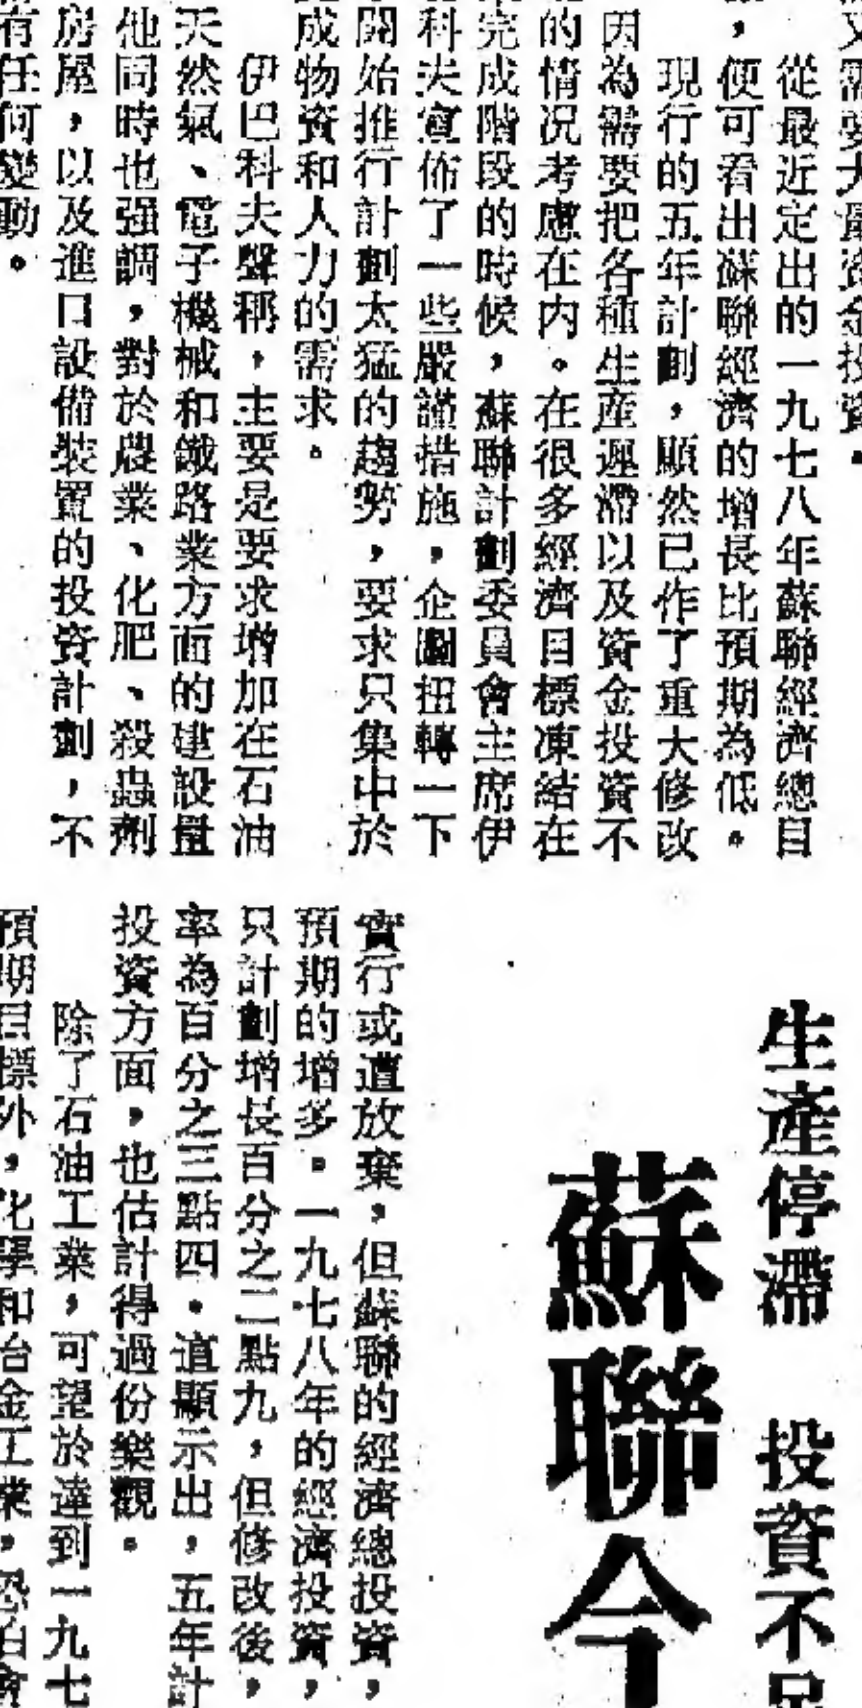 又需要大量資金投資。
從最近定出的一九七八年蘇聯經濟總目
，便可看出蘇聯經濟的增長比預期為低。
現行的五年計劃，顯然已作了重大修改
因為需要把各種生產遲滯以及資金投資不
的情況考慮在內。在很多經濟目標凍結在
完成階段的時候，蘇聯計劃委員會主席伊
科夫宣佈了一些嚴謹措施，企圖扭轉一下
開始推行計劃太猛的趨勢，要求只集中於
成物資和人力的需求。
伊巴科夫聲稱，主要是要求增加在石油
天然氣、電子機械和鐵路業方面的建設量
他同時也强調，對於農業、化肥、殺蟲劑
房屋，以及進口設備裝置的投資計劃，不
有任何變動。
生產停滯 投資不足
蘇聯今
實行或遭放棄，但蘇聯的經濟總投資，
預期的增多。一九七八年的經濟投資，
只計劃增長百分之二點九，但修改後，
率為百分之三點四。這顯示出，五年計
投資方面，也估計得過份樂觀。
除了石油工業，可望於達到一九七
預期目標外，化學和冶金工業，恐怕會